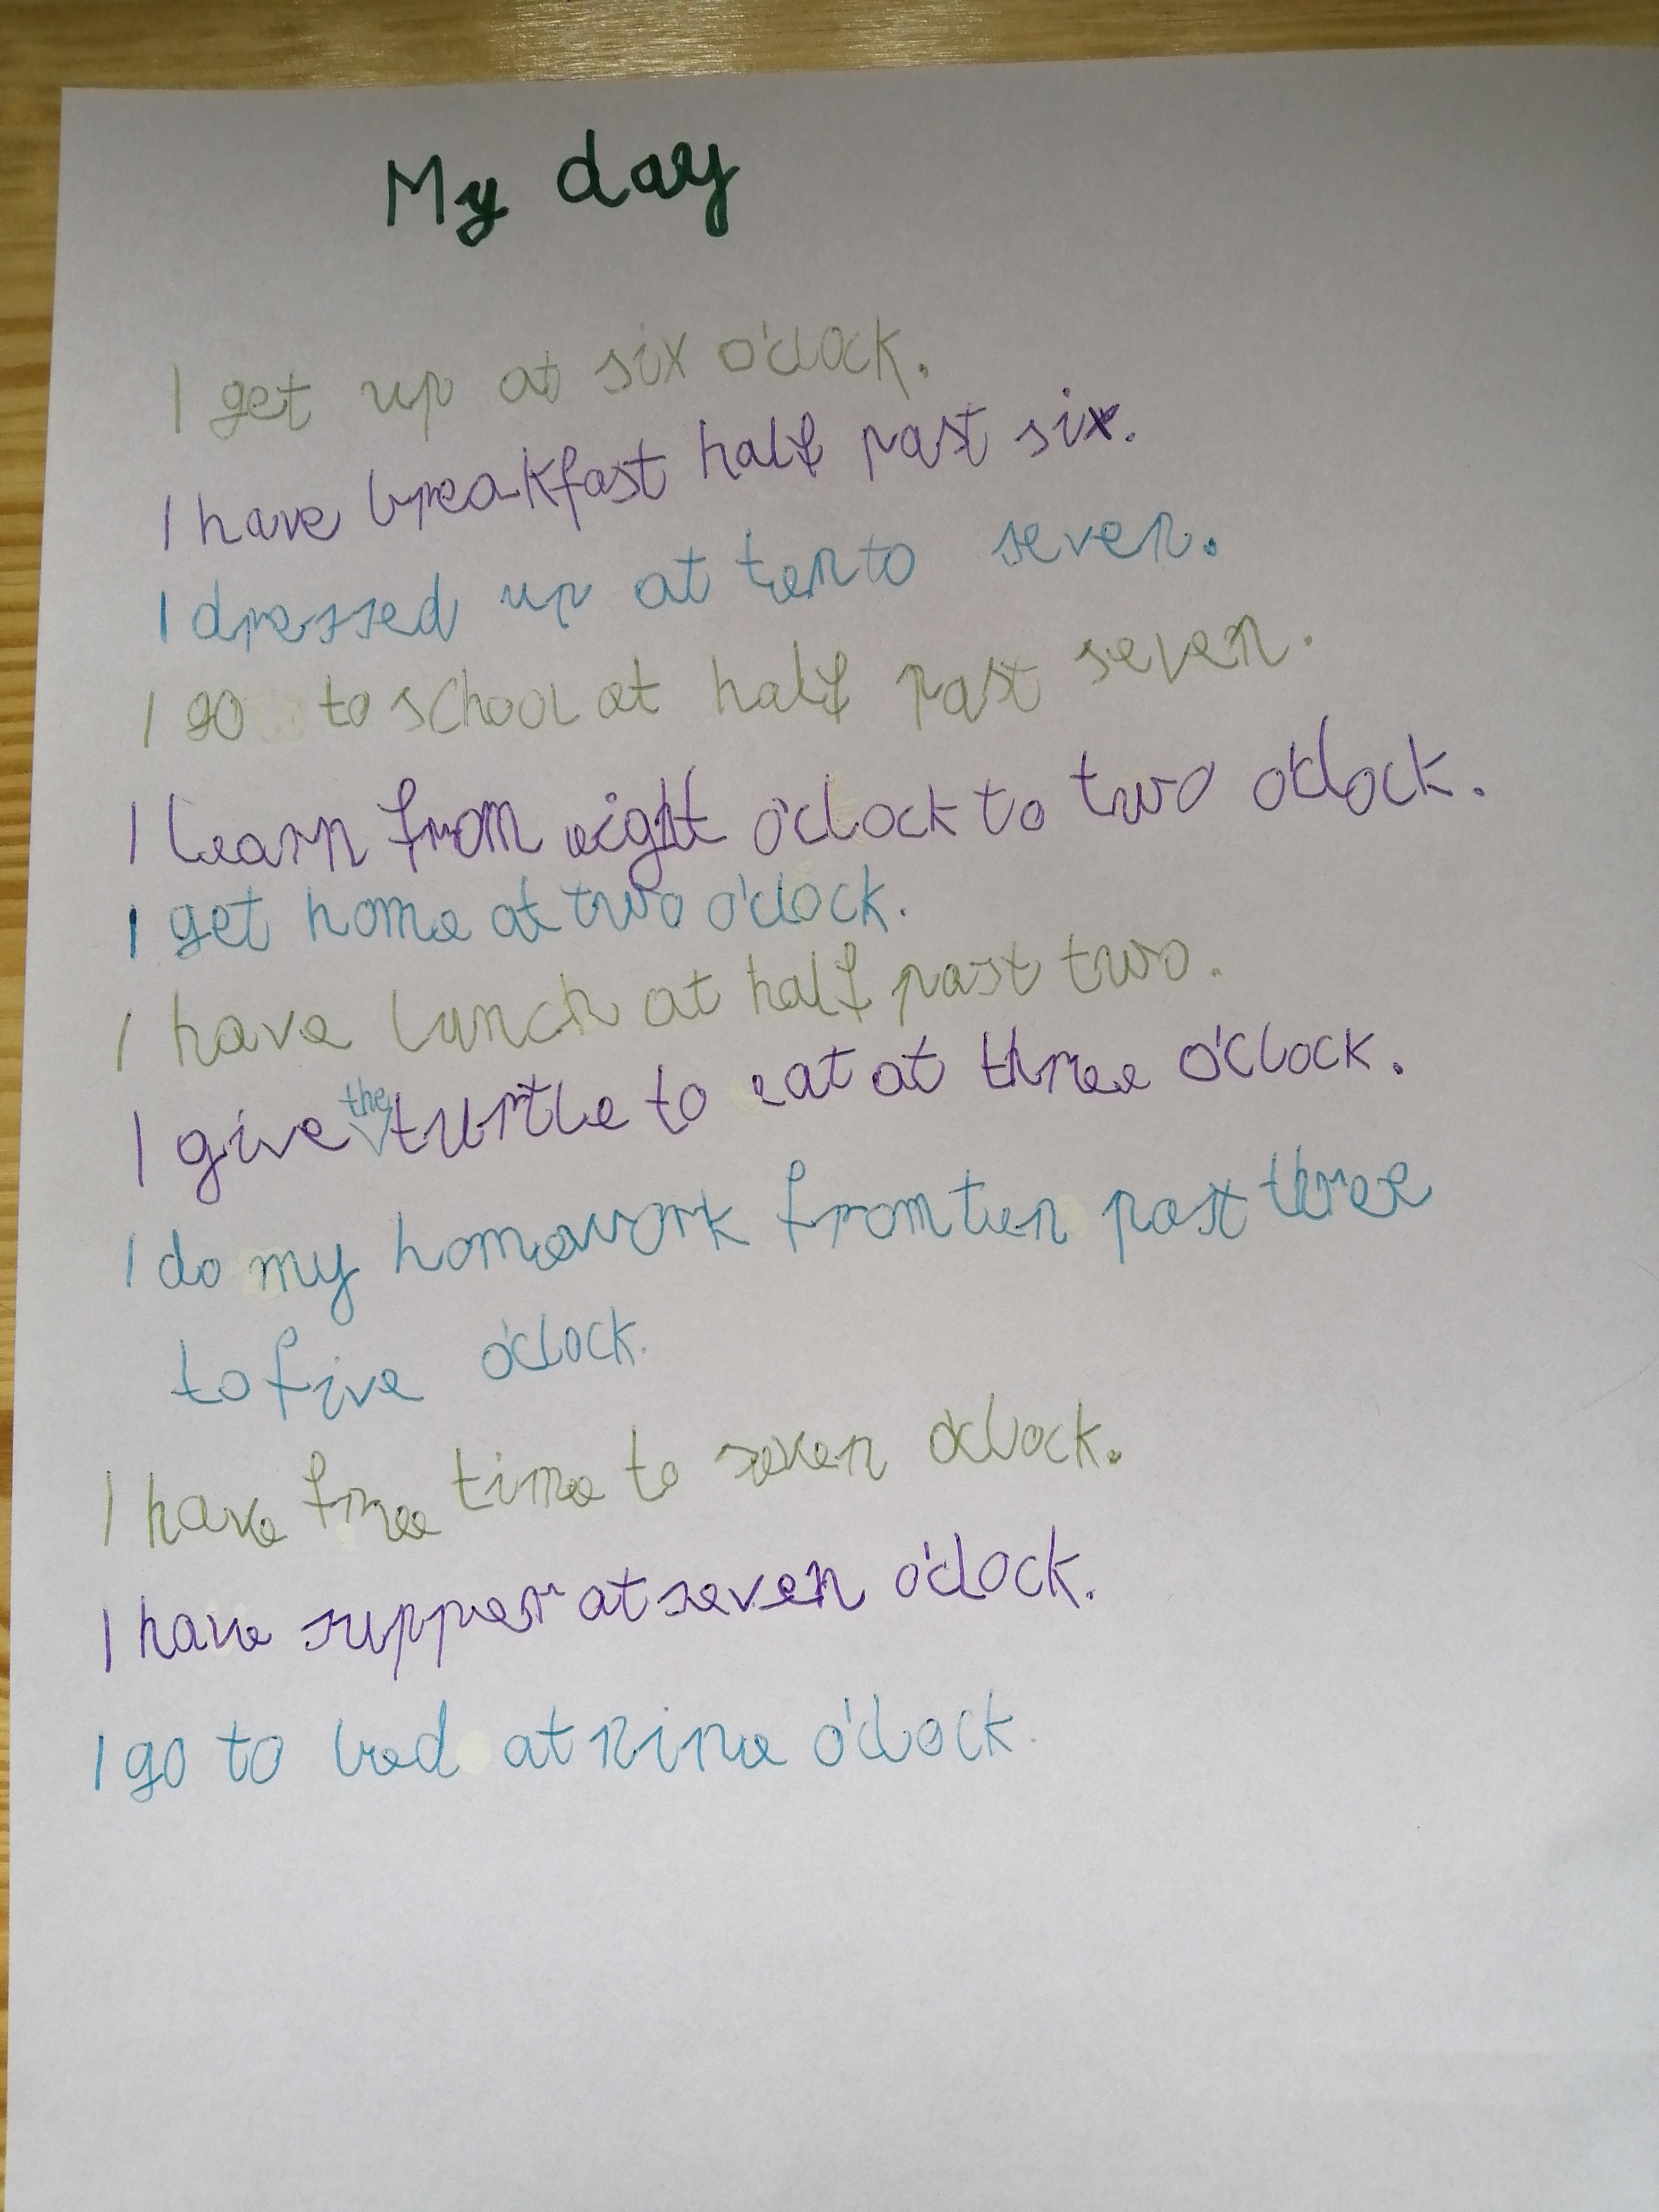 My day
I get up at six o'clock.
I have breakfast half past six.
I dressed up at ten to seven.
I go to school at half past seven.
I learn from eight o'clock to two o'clock.
I get home at two o'clock.
I have lunch at half past two.
I give the turtle to eat at three o'clock.
I do my homework from ten past three
to five o'clock.
I have free time to seven o'clock.
I have supper at seven o'clock.
I go to bed at nine o'clock.